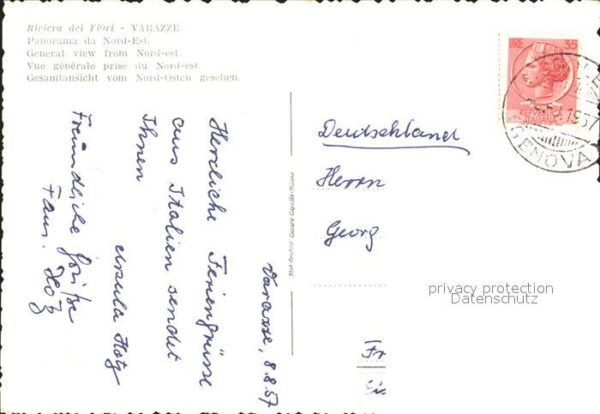 Riviera dei Fiori - VARAZZE
Panorama da Nord-Est.
General view from Nord-est.
Vue générale prise du Nord-est.
Gesamtansicht vom Nord-Osten gesehen.
LIRE 35
1957
GENOVA
Varazze, 8.8.57
Herzliche Feriengrüsse
aus Italien sendet
Ihnen
Ursula Hotz
Freundliche Grüße
Fam. Hotz
Deutschland
Herrn
Georg
privacy protection
Datenschutz